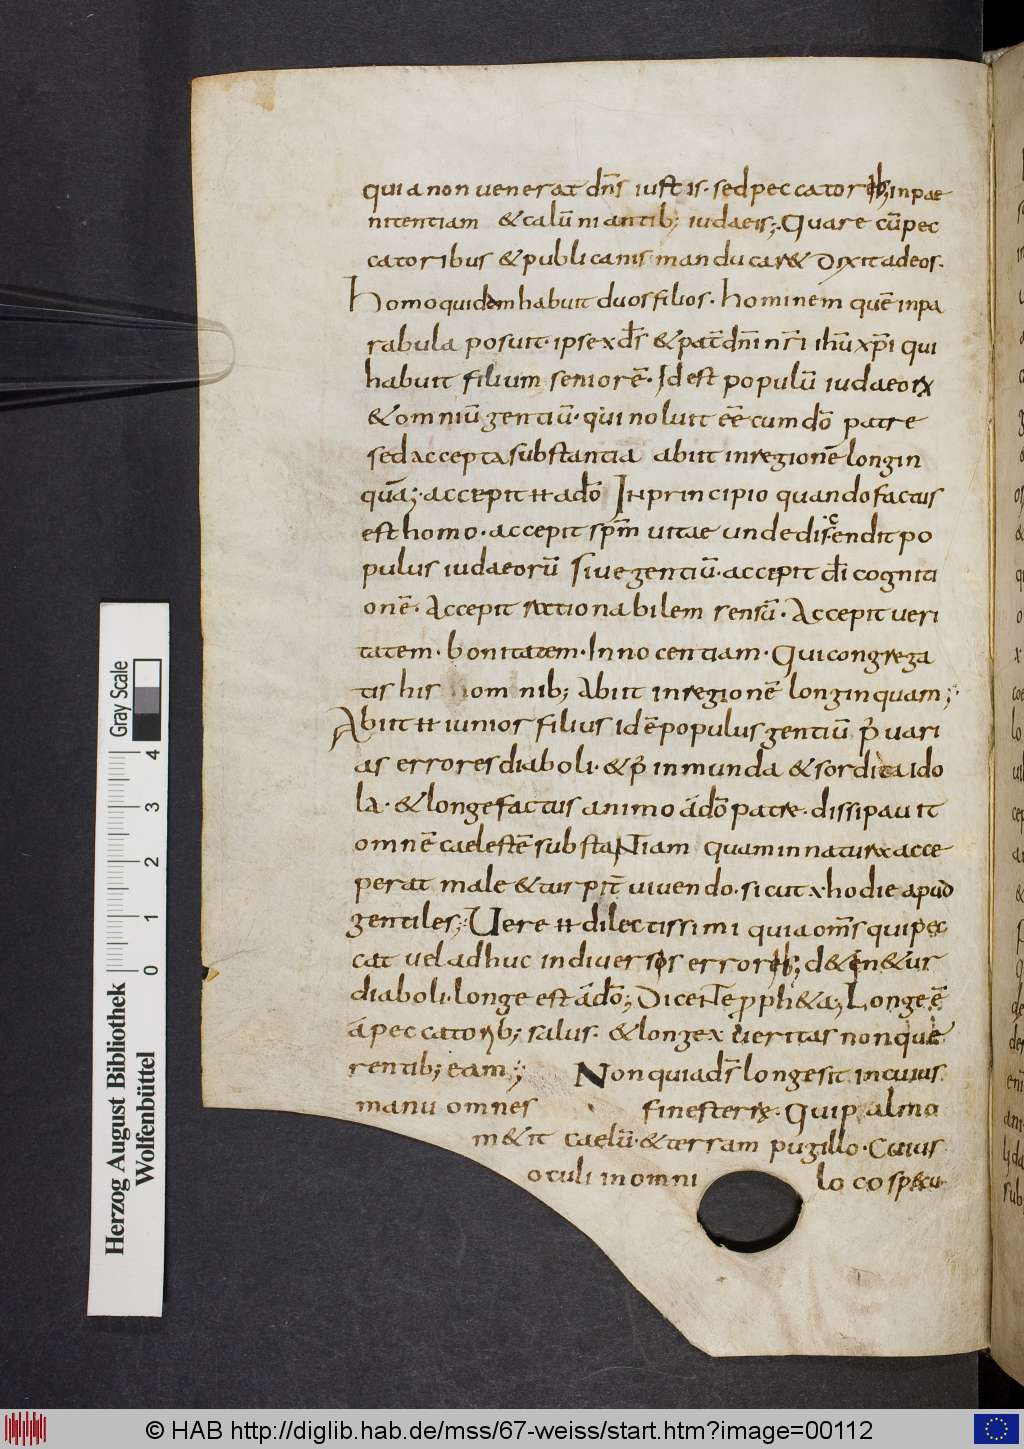 quia non uenerat dn̄s iustis· sed peccatorib; in pae
nitentiam & calūniantib; iudaeis; Quare cū pec
catoribus & publicanis manducar& Dixit ad eos·
Homo quidem habuit duos filios· hominem quē in pa
rabula posuit· ipse x ds̄ & pat̄ dn̄i nr̄i ihū xpī qui
habuit filium seniorē· Id est populū iudaeoꝝ
& omniū gentiū· qui noluit eē cum dō patre
sed accepta substantia abiit in regionē longin
quā; accepit ҥ a dō In principio quando factus
est homo· accepit spm̄ uitae unde discendit po
pulus iudaeorū siue gentiū· accepit dī cogniti
onē· Accepit rationabilem sensū· Accepit ueri
tatem· bonitatem· Innocentiam· Qui congrega
tis his omnib; Abiit in regionē longinquam;
Abiit ҥ iunior filius id ē populus gentiū p̄ uari
as errores diaboli· & p̄ inmunda & sordida Ido
la· & longe factus animo a dō patre· dissipauit
omnē caelestē substaNtiam quam in natura acce
perat male & turpit̄ uiuendo· sicut x hodie apud
gentiles; Uere ҥ dilectissimi quia om̄s qui pec
cat uel adhuc in diuersis errorib; d&in&ur
diaboli· longe est a dō; Dicente proph&a; Longe ē
a peccatorib; salus· & longe x ueritas non que
rentib; eam; Non quia ds̄ longe sit in cuius
manu omnes fines terrę· Qui palmo
m&it caelū· & terram pugillo· Cuius
oculi in omni loco specu
Gray Scale
4
3
2
1
0
Herzog August Bibliothek
Wolfenbüttel
© HAB http://diglib.hab.de/mss/67-weiss/start.htm?image=00112